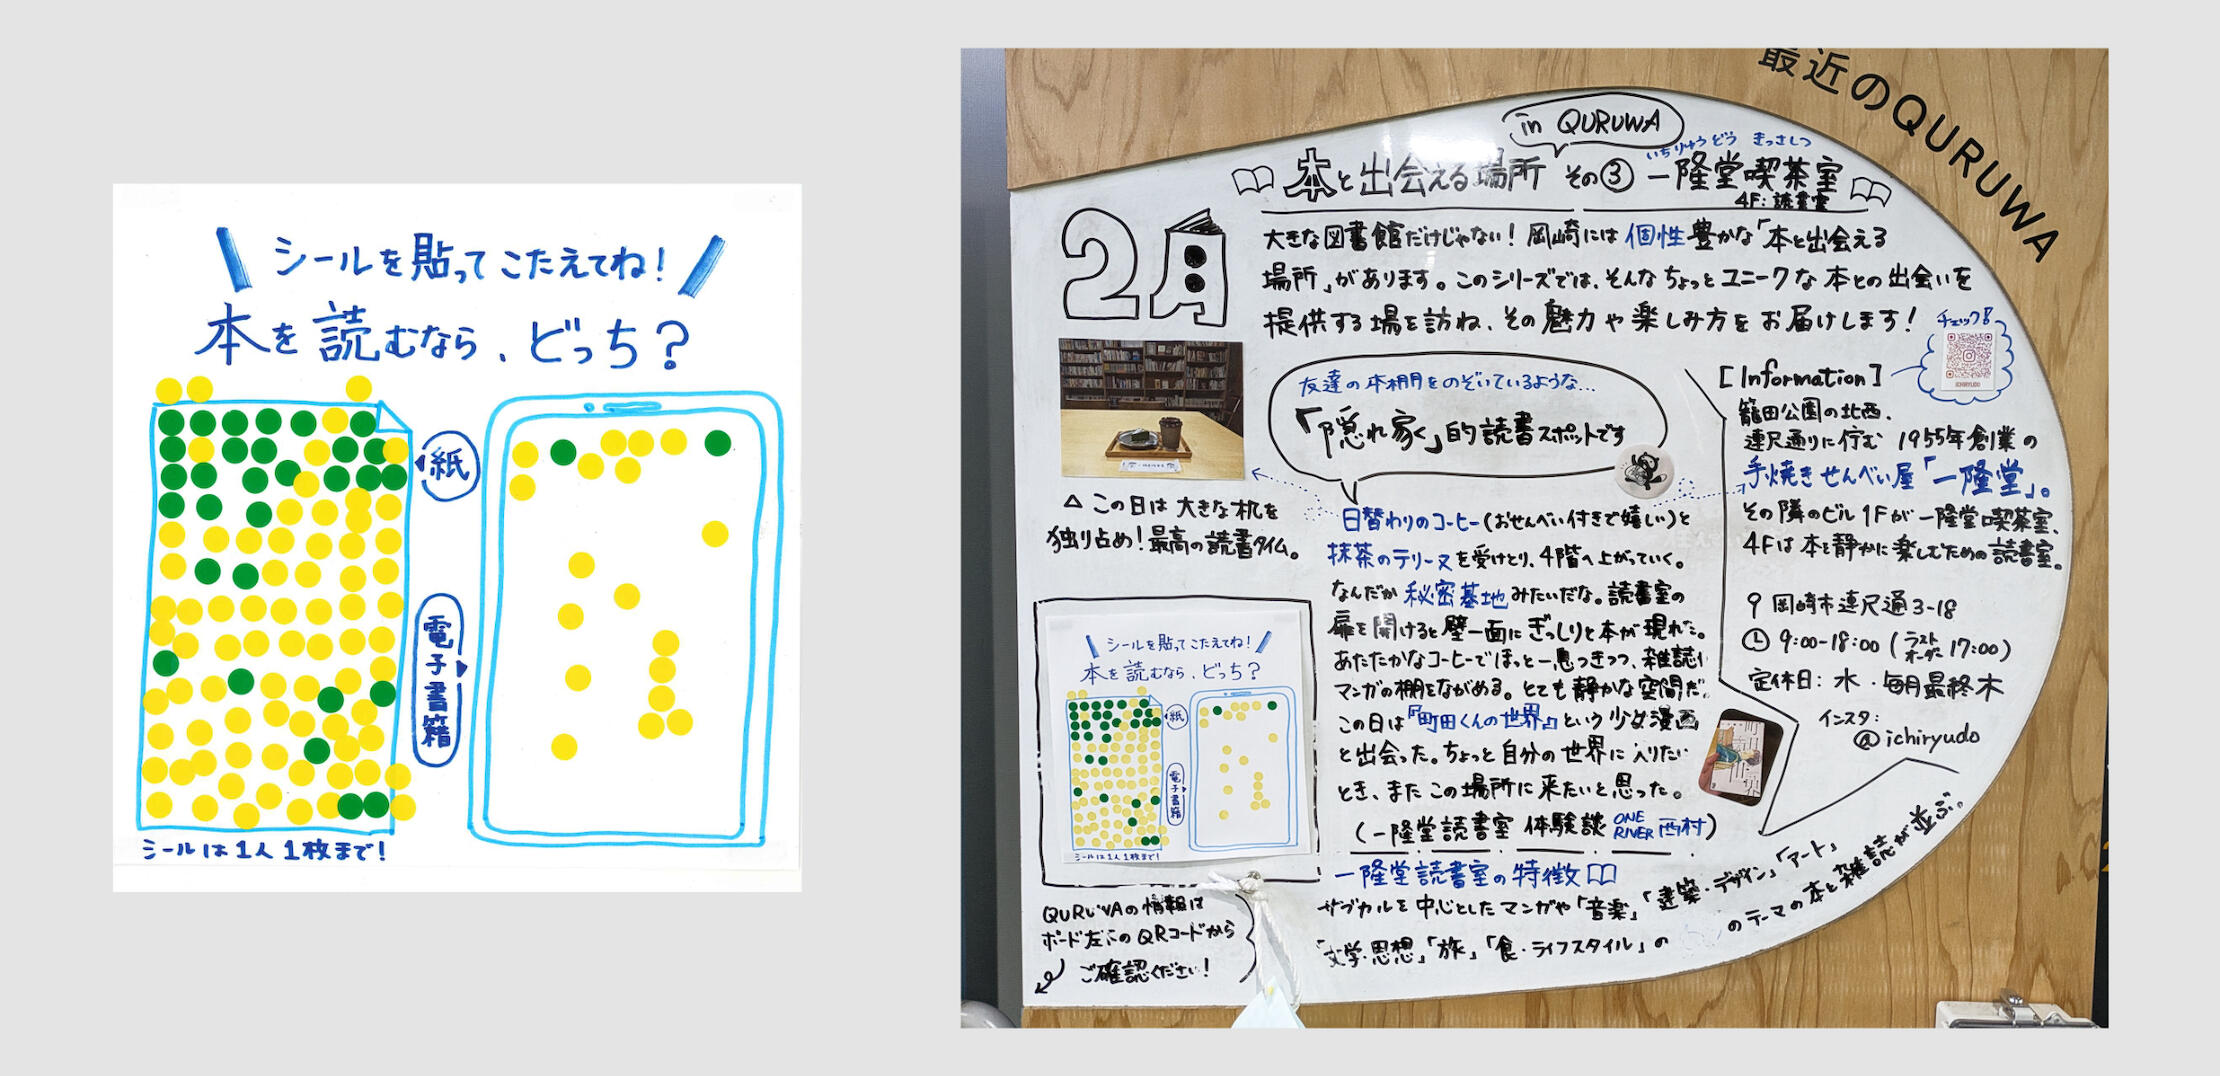 シールを貼ってこたえてね!
本を読むなら、どっち?
紙
電子書籍
シールは1人1枚まで!
最近のQURUWA
in QURUWA
いちりゅうどう きっさしつ
本と出会える場所 その③ 一隆堂喫茶室
4F:読書室
2月
大きな図書館だけじゃない!岡崎には個性豊かな「本と出会える
場所」があります。このシリーズでは、そんなちょっとユニークな本との出会いを
提供する場を訪ね、その魅力や楽しみ方をお届けします!
友達の本棚をのぞいているような…
「隠れ家」的読書スポットです
△この日は大きな机を
独り占め!最高の読書タイム。
日替わりのコーヒー(おせんべい付きで嬉しい)と
抹茶のテリーヌを受けとり、4階へ上がっていく。
なんだか秘密基地みたいだな。読書室の
扉を開けると壁一面にぎっしりと本が現れた。
あたたかなコーヒーでほっと一息つきつつ、雑誌や
マンガの棚をながめる。とても静かな空間だ。
この日は『町田くんの世界』という少女漫画
と出会った。ちょっと自分の世界に入りたい
とき、またこの場所に来たいと思った。
(一隆堂読書室 体験談 ONE RIVER 西村)
一隆堂読書室の特徴
サブカルを中心としたマンガや「音楽」「建築・デザイン」「アート」
「文学・思想」「旅」「食・ライフスタイル」の
のテーマの本と雑誌が並ぶ。
チェック!
ICHIRYUDO
[Information]
籠田公園の北西、
連尺通りに佇む 1955年創業の
手焼きせんべい屋「一隆堂」。
その隣のビル1Fが一隆堂喫茶室、
4Fは本を静かに楽しむための読書室。
岡崎市連尺通3-18
9:00-18:00(ラストオーダー17:00)
定休日:水・毎月最終木
インスタ:
@ichiryudo
シールを貼ってこたえてね!
本を読むなら、どっち?
紙
電子書籍
シールは1人1枚まで!
QURUWAの情報は
ボード左下のQRコードから
ご確認ください!